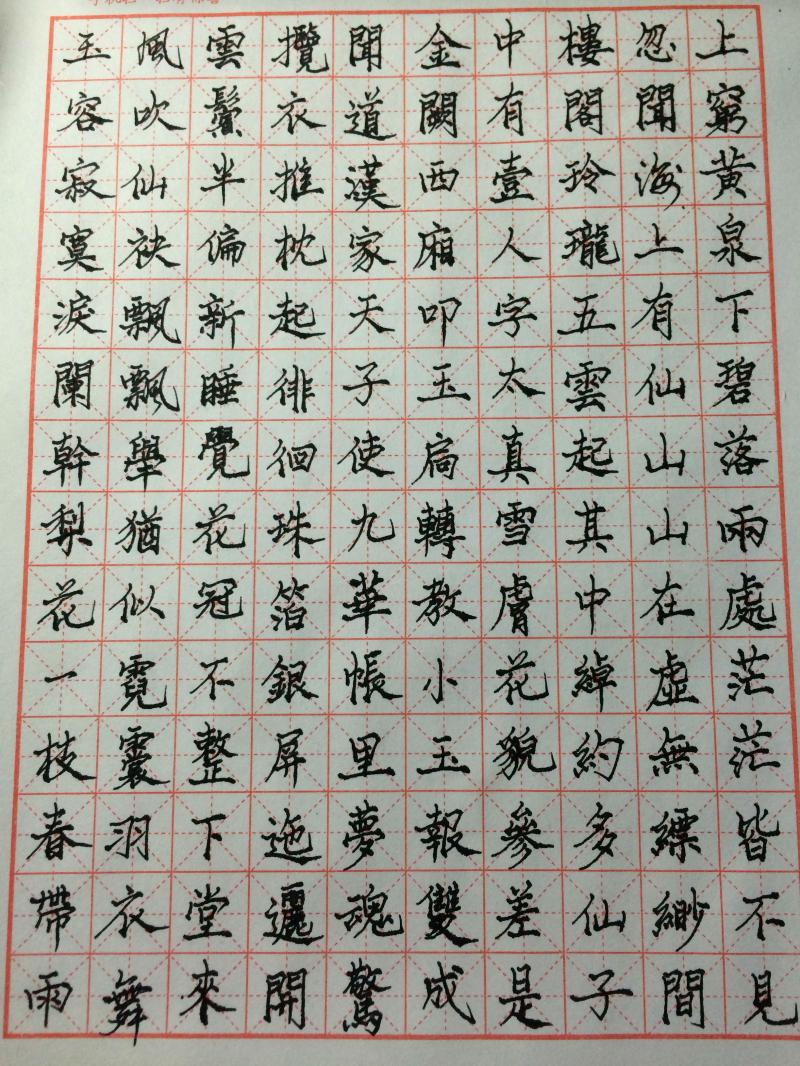 上窮黃泉下碧落雨處茫茫皆不見
忽聞海上有仙山山在虛無縹緲間
樓閣玲瓏五雲起其中綽約多仙子
中有壹人字太真雪膚花貌參差是
金闕西廂叩玉扃轉教小玉報雙成
聞道漢家天子使九華帳里夢魂驚
攬衣推枕起徘徊珠箔銀屏迤邐開
雲鬢半偏新睡覺花冠不整下堂來
風吹仙袂飄飄舉猶似霓裳羽衣舞
玉容寂寞淚闌幹梨花一枝春帶雨